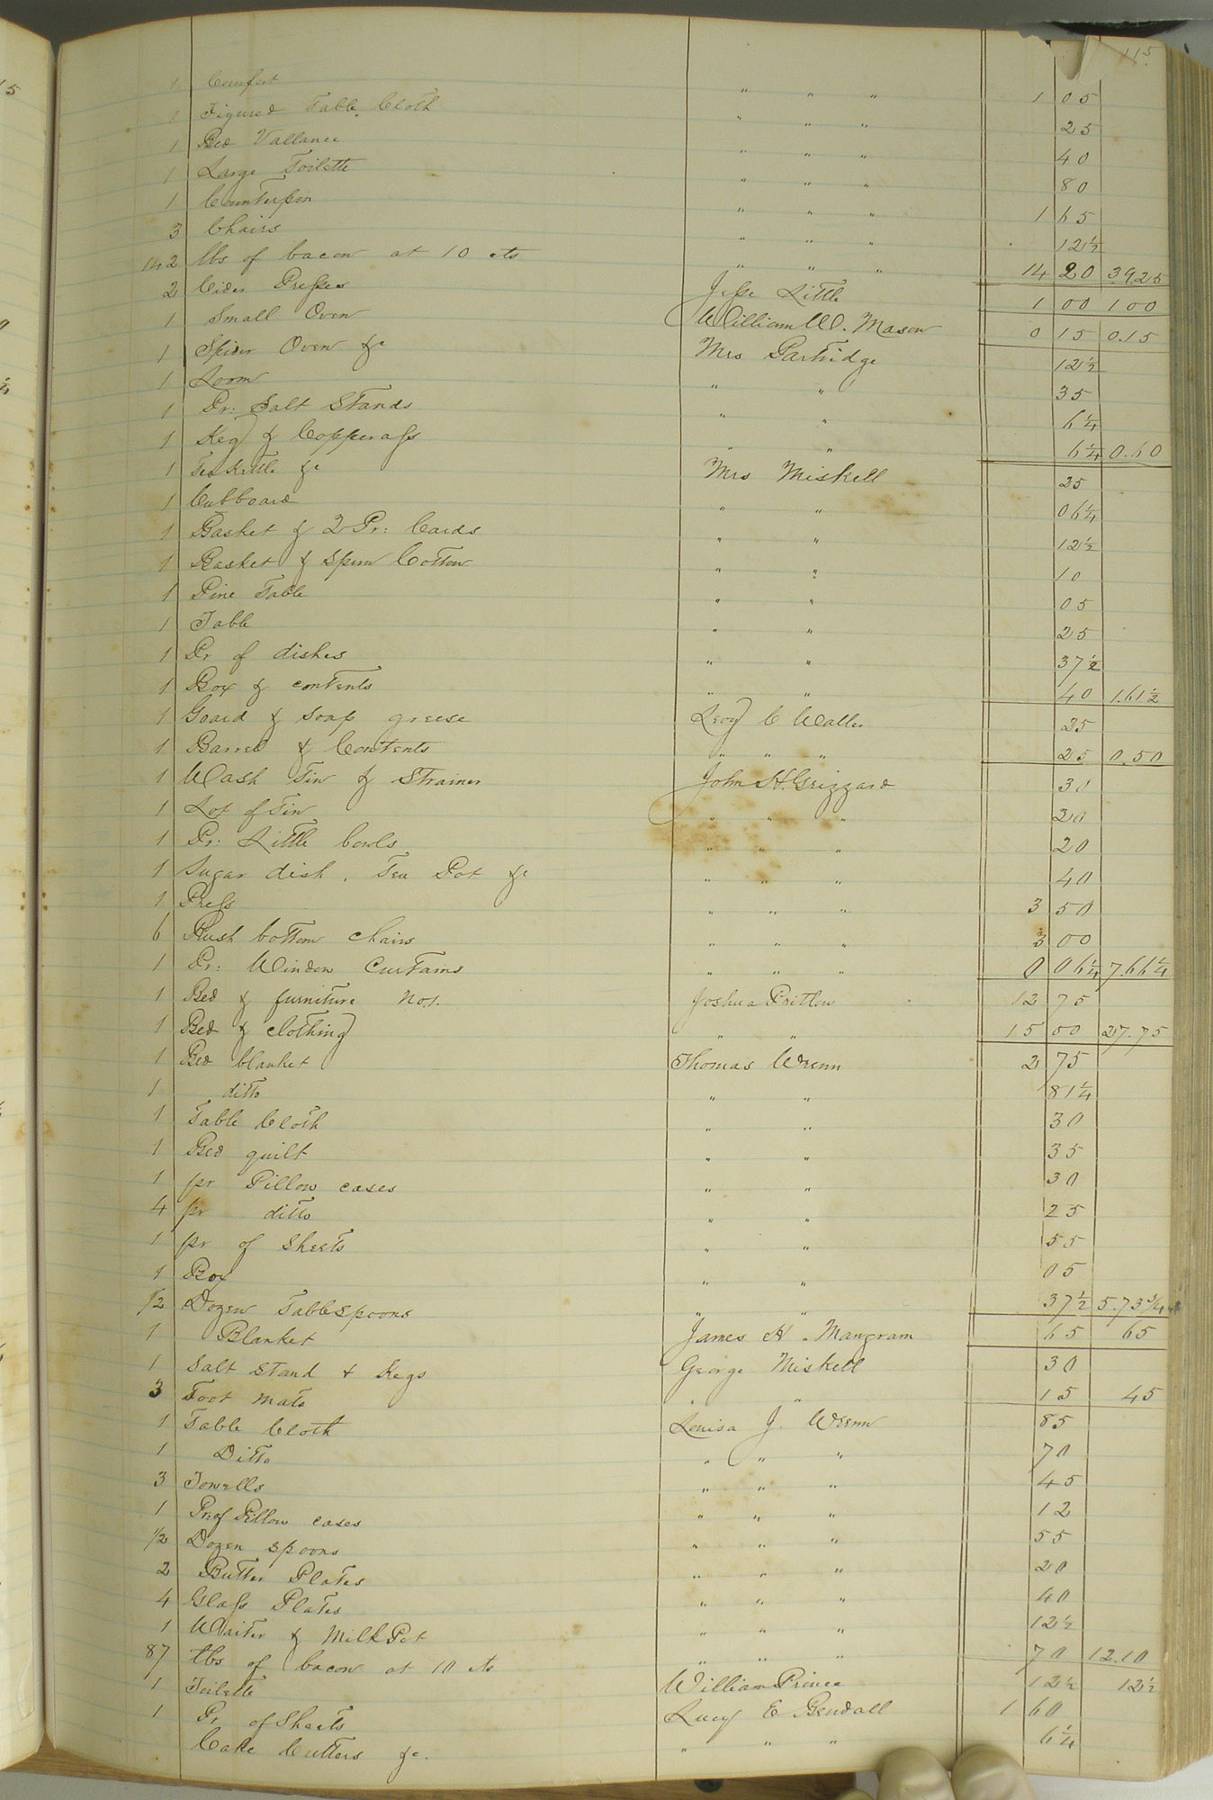 115
1 Comfort " " " 1 05
1 Figured Table Cloth " " " 25
1 Bed Vallance " " " 40
1 Large Toilette " " " 80
1 Counterpin " " " 1 65
3 Chairs " " " 12½
142 lbs of bacon at 10 cts " " " 14 20 39.25
2 Cider Presses Jesse Little 1 00 1 00
1 Small Oven William W. Mason 0 15 0.15
1 Spider Oven &c Mrs Partridge 12½
1 Loom " " 35
1 Pr: Salt Stands " " 6¼
1 Keg & Copperass " " 6¼ 0.60
1 Tea Kettle &c Mrs Miskell 25
1 Cubboard " " 06¼
1 Basket & 2 Pr: Cards " " 12½
1 Basket & Spun Cotton " " 10
1 Pine Table " " 05
1 Table " " 25
1 Pr of dishes " " 37½
1 Box & contents " " 40 1.61½
1 Goard & Soap greese Levy C Waller 25
1 Barrel & Contents " " " 25 0.50
1 Wash Tin & Strainer John H. Grizzard 30
1 Lot of Tin " " " 20
1 Pr: Little bowls " " " 20
1 Sugar dish, Tea Pot &c " " " 40
1 Press " " " 3 50
6 Rush bottom chairs " " " 3 00
1 Pr: Window Curtains " " " 0 06¼ 7.66¼
1 Bed & furniture No 1. Joshua Pretlow 12 75
1 Bed & clothing " " 15 00 27.75
1 Bed blanket Thomas Wrenn 2 75
1 ditto " " 81¼
1 Table Cloth " " 30
1 Bed quilt " " 35
1 pr Pillow cases " " 30
4 pr ditto " " 25
1 pr of Sheets " " 55
1 Box " " 05
1/2 Dozen Tablespoons " " 37½ 5.73¾
1 Blanket James H. Mangram 65 65
1 Salt Stand & Kegs George Miskell 30
3 Foot mats " " 15 45
1 Table Cloth Louisa J. Wrenn 85
1 Ditto " " " 70
3 Towells " " " 45
1 Pr of Pillow cases " " " 12
1/2 Dozen spoons " " " 55
2 Butter Plates " " " 20
4 Glass Plates " " " 40
1 Waiter & Milk Pot " " " 12½
87 lbs of bacon at 10 cts " " " 70 12.10
1 Toilette William Prince 12½ 12½
1 Pr of Sheets Lucy E Bendall 1 60
Cake Cutters &c. " " " 6¼